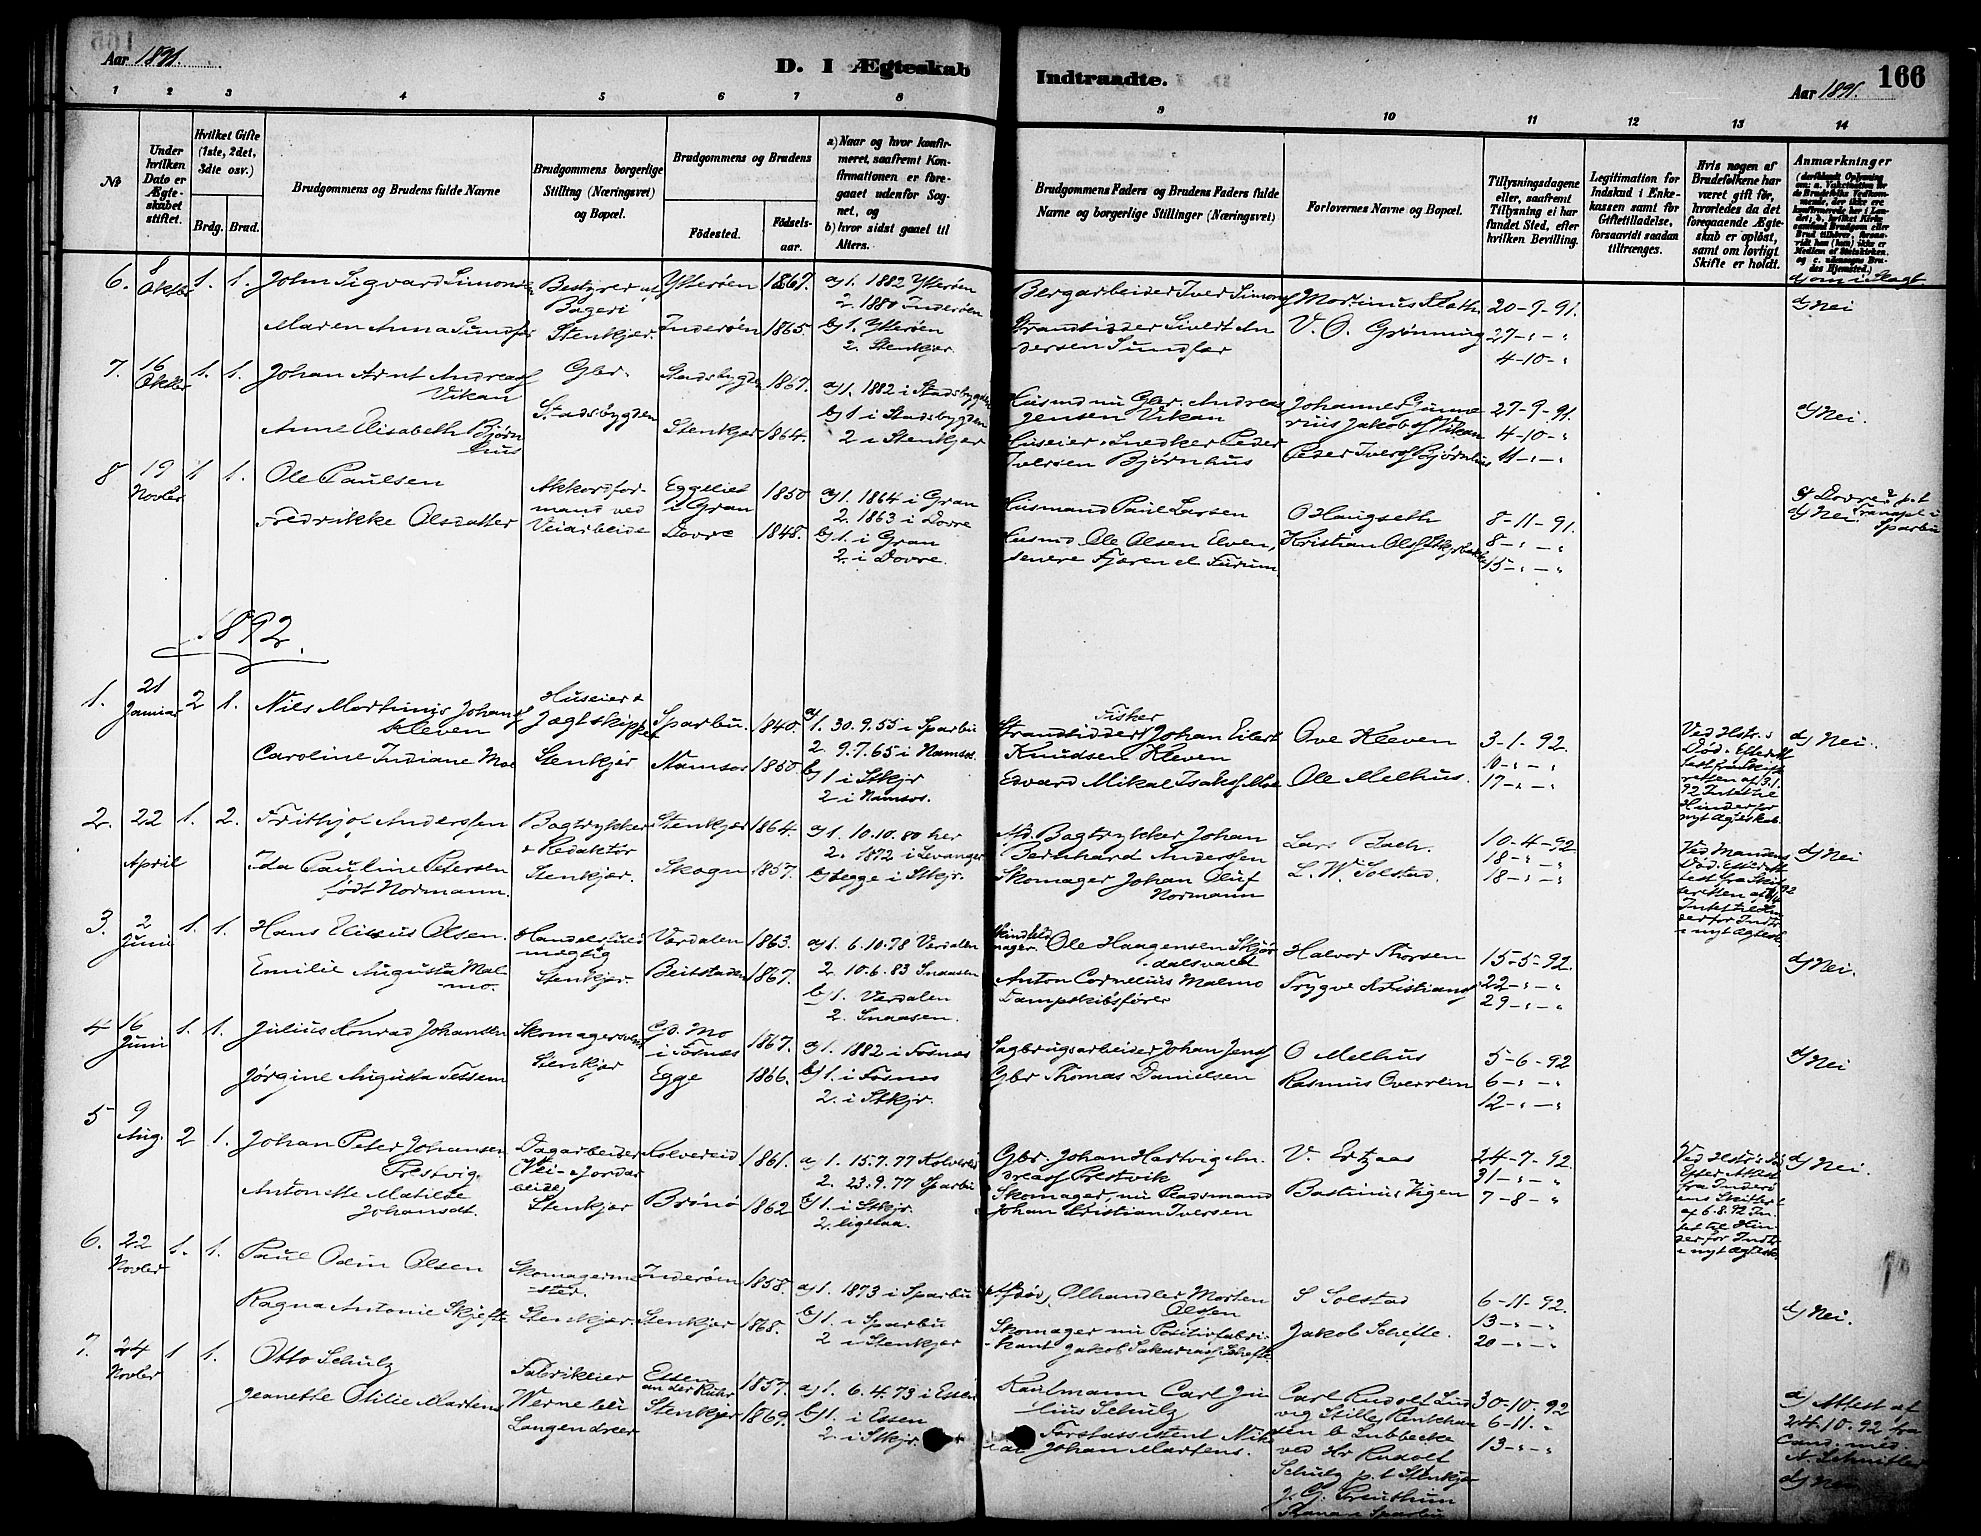 Aar 1891.
D. I Ægteskab
Indtraadte.
Aar 1891.
166
1 2 3 4 5 6 7 8 9 10 11 12 13 14
№
Under hvilken Dato er Ægteskabet stiftet.
Hvilket Gifte (1ste, 2det, 3die osv.)
Brdg. Brud.
Brudgommens og Brudens fulde Navne
Brudgommens borgerlige Stilling (Næringsvei) og Bopæl.
Brudgommens og Brudens
Fødested.
Fødsels-aar.
a) Naar og hvor konfirmeret, saafremt Konfirmationen er foregaaet udenfor Sognet, og
b) hvor sidst gaaet til Alters.
Brudgommens Faders og Brudens Faders fulde Navne og borgerlige Stillinger (Næringsvei)
Forlovernes Navne og Bopæl.
Tillysningsdagene eller, saafremt Tillysning ei har fundet Sted, efter hvilken Bevilling.
Legitimation for Indskud i Enkekassen samt for Giftetilladelse, forsaavidt saadan tiltrænges.
Hvis nogen af Brudefolkene har været gift før, hvorledes da det foregaaende Ægteskab er opløst, samt om lovligt Skifte er holdt.
Anmærkninger
6. 8 Oktbr 1. 1. John Sigvard Simonsen Bestyrer af Bageri Stenkjær. Ytterøen 1867. a) 1. 1882 Ytterøen
Bergarbeider Iver Simons Martinus Flath 20-9-91. d) Nei
Maren Anna Sundfær Inderøen 1865. 2. 1880 Inderøen
b) 1. Ytterøen
2. Stenkjær.
Strandsidder Sivert Andersen Sundfær V. O. Grønning 27-"-"
4-10-"
7. 16 Oktbr 1. 1. Johan Arnt Andreas Vikan Gbr. Stadsbygden Stadsbygden 1867. a) 1. 1882 i Stadsbygden
Husmd nu Gbr. Andreas Jensen Vikan Johannes Gunnerius Jakobs Vikan 27-9-91. d) Nei.
Anne Elisabeth Bjørnhus Stenkjær 1864. b) 1 i Stadsbygden
2 i Stenkjær
Huseier, Snedker Peder Iversen Bjørnhus Peder Ivers Bjørnhus 4-10-"
11-"-"
8 19 Novbr 1 1. Ole Paulsen Akkordformand ved Veiarbeide Eggeliet i Gran 1850 a) 1. 1864 i Gran
Husmand Paul Larsen O Haugseth 8-11-91.
Fredrikke Olsdatter Dovre 1848. 2. 1863 i Dovre
b) 1. i Gran
2. i Dovre.
Husmd Ole Olsen Elven, senere Fjæren el Furum. Kristian Ols 8-"-"
15-"-"
Dovre p.t
d) Nei
Sparbu
1892.
1. 21 Januar 2 1. Nils Martinus Johans Kleven Huseier & Jægtskipper Stenkjær Sparbu. 1840. a) 1. 30.9.55 i Sparbu
Strandsidder, Fisker Johan Eilert Knudsen Kleven Ove Kleven 3-1-92. d) Nei.
Caroline Indiane Moe Namsos 1850. 2. 9.7.65 i Namsos.
b) 1 i Stkjr
2 i Namsos.
Edvard Mikal Isaks Moe Ole Melhus. 10-"-"
17-"-"
Ved Hstr.s Død. Efter Attest fra Skifteretten af 3.1.92 Intet til Hinder for nyt Ægteskab.
2. 22 April 1. 2. Frithjof Anderssen Bogtrykker & Redaktør Stenkjær. Stenkjær 1864. a) 1. 10.10.80 her
Afd. Bogtrykker Johan Bernhard Anderssen Lars Bach. 10-4-92 d) Nei
Ida Pauline Petersen født Normann. Skogn 1857. 2. 1872 i Levanger
b) begge i Stkjr.
Skomager Johan Oluf Normann L. W. Solstad. 18-"-"
18-"-"
Ved Mandens Død. Efter Attest fra Skifteretten af Intet til Hinder for Indtr. i nyt Ægtesk.
3. 2 Juni 1. 1. Hans Elisæus Olsen. Handelsfuldmægtig Stenkjær. Værdalen 1863. a) 1. 6.10.78 Værdalen
Ole Haagensen Skjørdalsvald Halvor Thorsen 15-5-92. d) Nei.
Emilie Augusta Malmo. Beitstaden 1867. 2. 10.6.83 Snaasen
b) 1. Værdalen
2. Snaasen.
Anton Cornelius Malmo Dampskibsfører Trygve Kristians 22-"-"
29-"-"
4 16 Juni 1. 1. Julius Konrad Johansen Skomagersvend Stenkjær Mo i Fosnæs 1867. a) 1. 1882 i Fosnæs
Sagbrugsarbeider Johan Jens O Melhus 5-6-92 d) Nei
Jørgine Augusta Fossem Egge 1866. b) 1. i Fosnæs
2. i Stkjr.
Gbr Thomas Danielsen Rasmus Overrein 6-"-"
12-"-"
5 9 Aug. 2 1. Johan Peter Johansen Prestvig Dagarbeider (Vei- & Jordarbeide) Stenkjær Kolvereid 1861. a) 1. 15.7.77 Kolvereid
Gbr. Johan Hartvig Andreas Prestvik V. Ertzaas 24-7-92. d) Nei.
Antonette Matilde Johansdt. Brønø 1862 2. 23.9.77 Sparbu
b) 1. i Stkjr.
2. ligesaa.
Skomager, nu Johan Kristian Iversen Bastinius Vigen 31-"-"
7-8-"
Ved Hstr.s Død Efter Attest fra Inderøens Skifter af 6.8.92 Intet til Hinder for Indtr. i nyt Ægtesk.
6. 22 Novbr 1. 1. Paul Odin Olsen Skomagermester. Stenkjær. Inderøen 1858. a) 1. 1873 i Sparbu
Afdød, Olhandler Morten Olssen S Solstad 6-11-92. d) Nei.
Ragna Antonie Skjefte Stenkjær 1868. b) 1. i Sparbu
2 i Stenkjær
Skomager nu Positivfabrikant Jakob Sakarias Schefte Jakob Schefte. 13-"-"
20-"-"
7. 24 Novbr 1 1. Otto Schulz Fabrikeier Werne bei Langendreer Essen an der Ruhr 1857. a) 1. 6.4.73 i Essen
Kaufmann Carl Julius Schulz Carl Rudolf Ludvig Stille, b Lubbecke 30-10-92
Jeanette Otilie Martens Stenkjær 1869. b) 1. i Essen
2. i Stkjr.
Forstassistent Nikolai Johan Martens. ved Hr Rudolf Schulz p.t Stenkjær 6-11-"
13-"-"
Attest af 24.10.92 fra Cand. med.
d) Nei